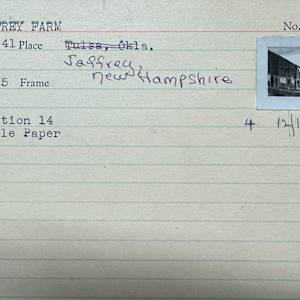 REY FARM No.
41 Place Tulsa, Okla.
Jaffrey,
New Hampshire
5 Frame
tion 14
le Paper 4 12/1